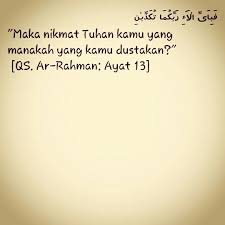 فَبِأَىِّ اٰلَاۤءِ رَبِّكُمَا تُكَذِّبٰنِ
"Maka nikmat Tuhan kamu yang
manakah yang kamu dustakan?"
[QS. Ar-Rahman: Ayat 13]